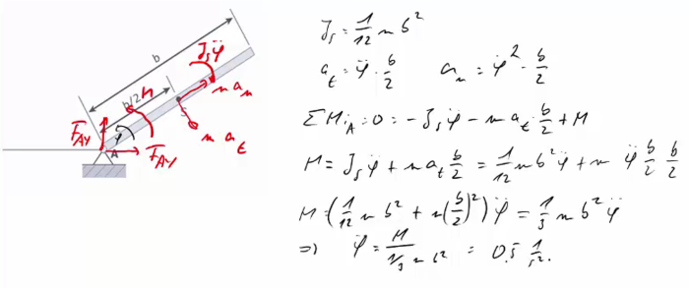 b
J_s φ̈
b/2
M
m a_n
F_AY
φ
S
m a_t
A
F_AY
J_s = 1/12 m b²
a_t = φ̈ · b/2    a_n = φ̇² · b/2
ΣM_iA = 0 = - J_s φ̈ - m a_t · b/2 + M
M = J_s φ̈ + m a_t b/2 = 1/12 m b² φ̈ + m φ̈ b/2 b/2
M = (1/12 m b² + m (b/2)²) φ̈ = 1/3 m b² φ̈
⇒ φ̈ = M / (1/3 m b²) = 0.5 1/s².